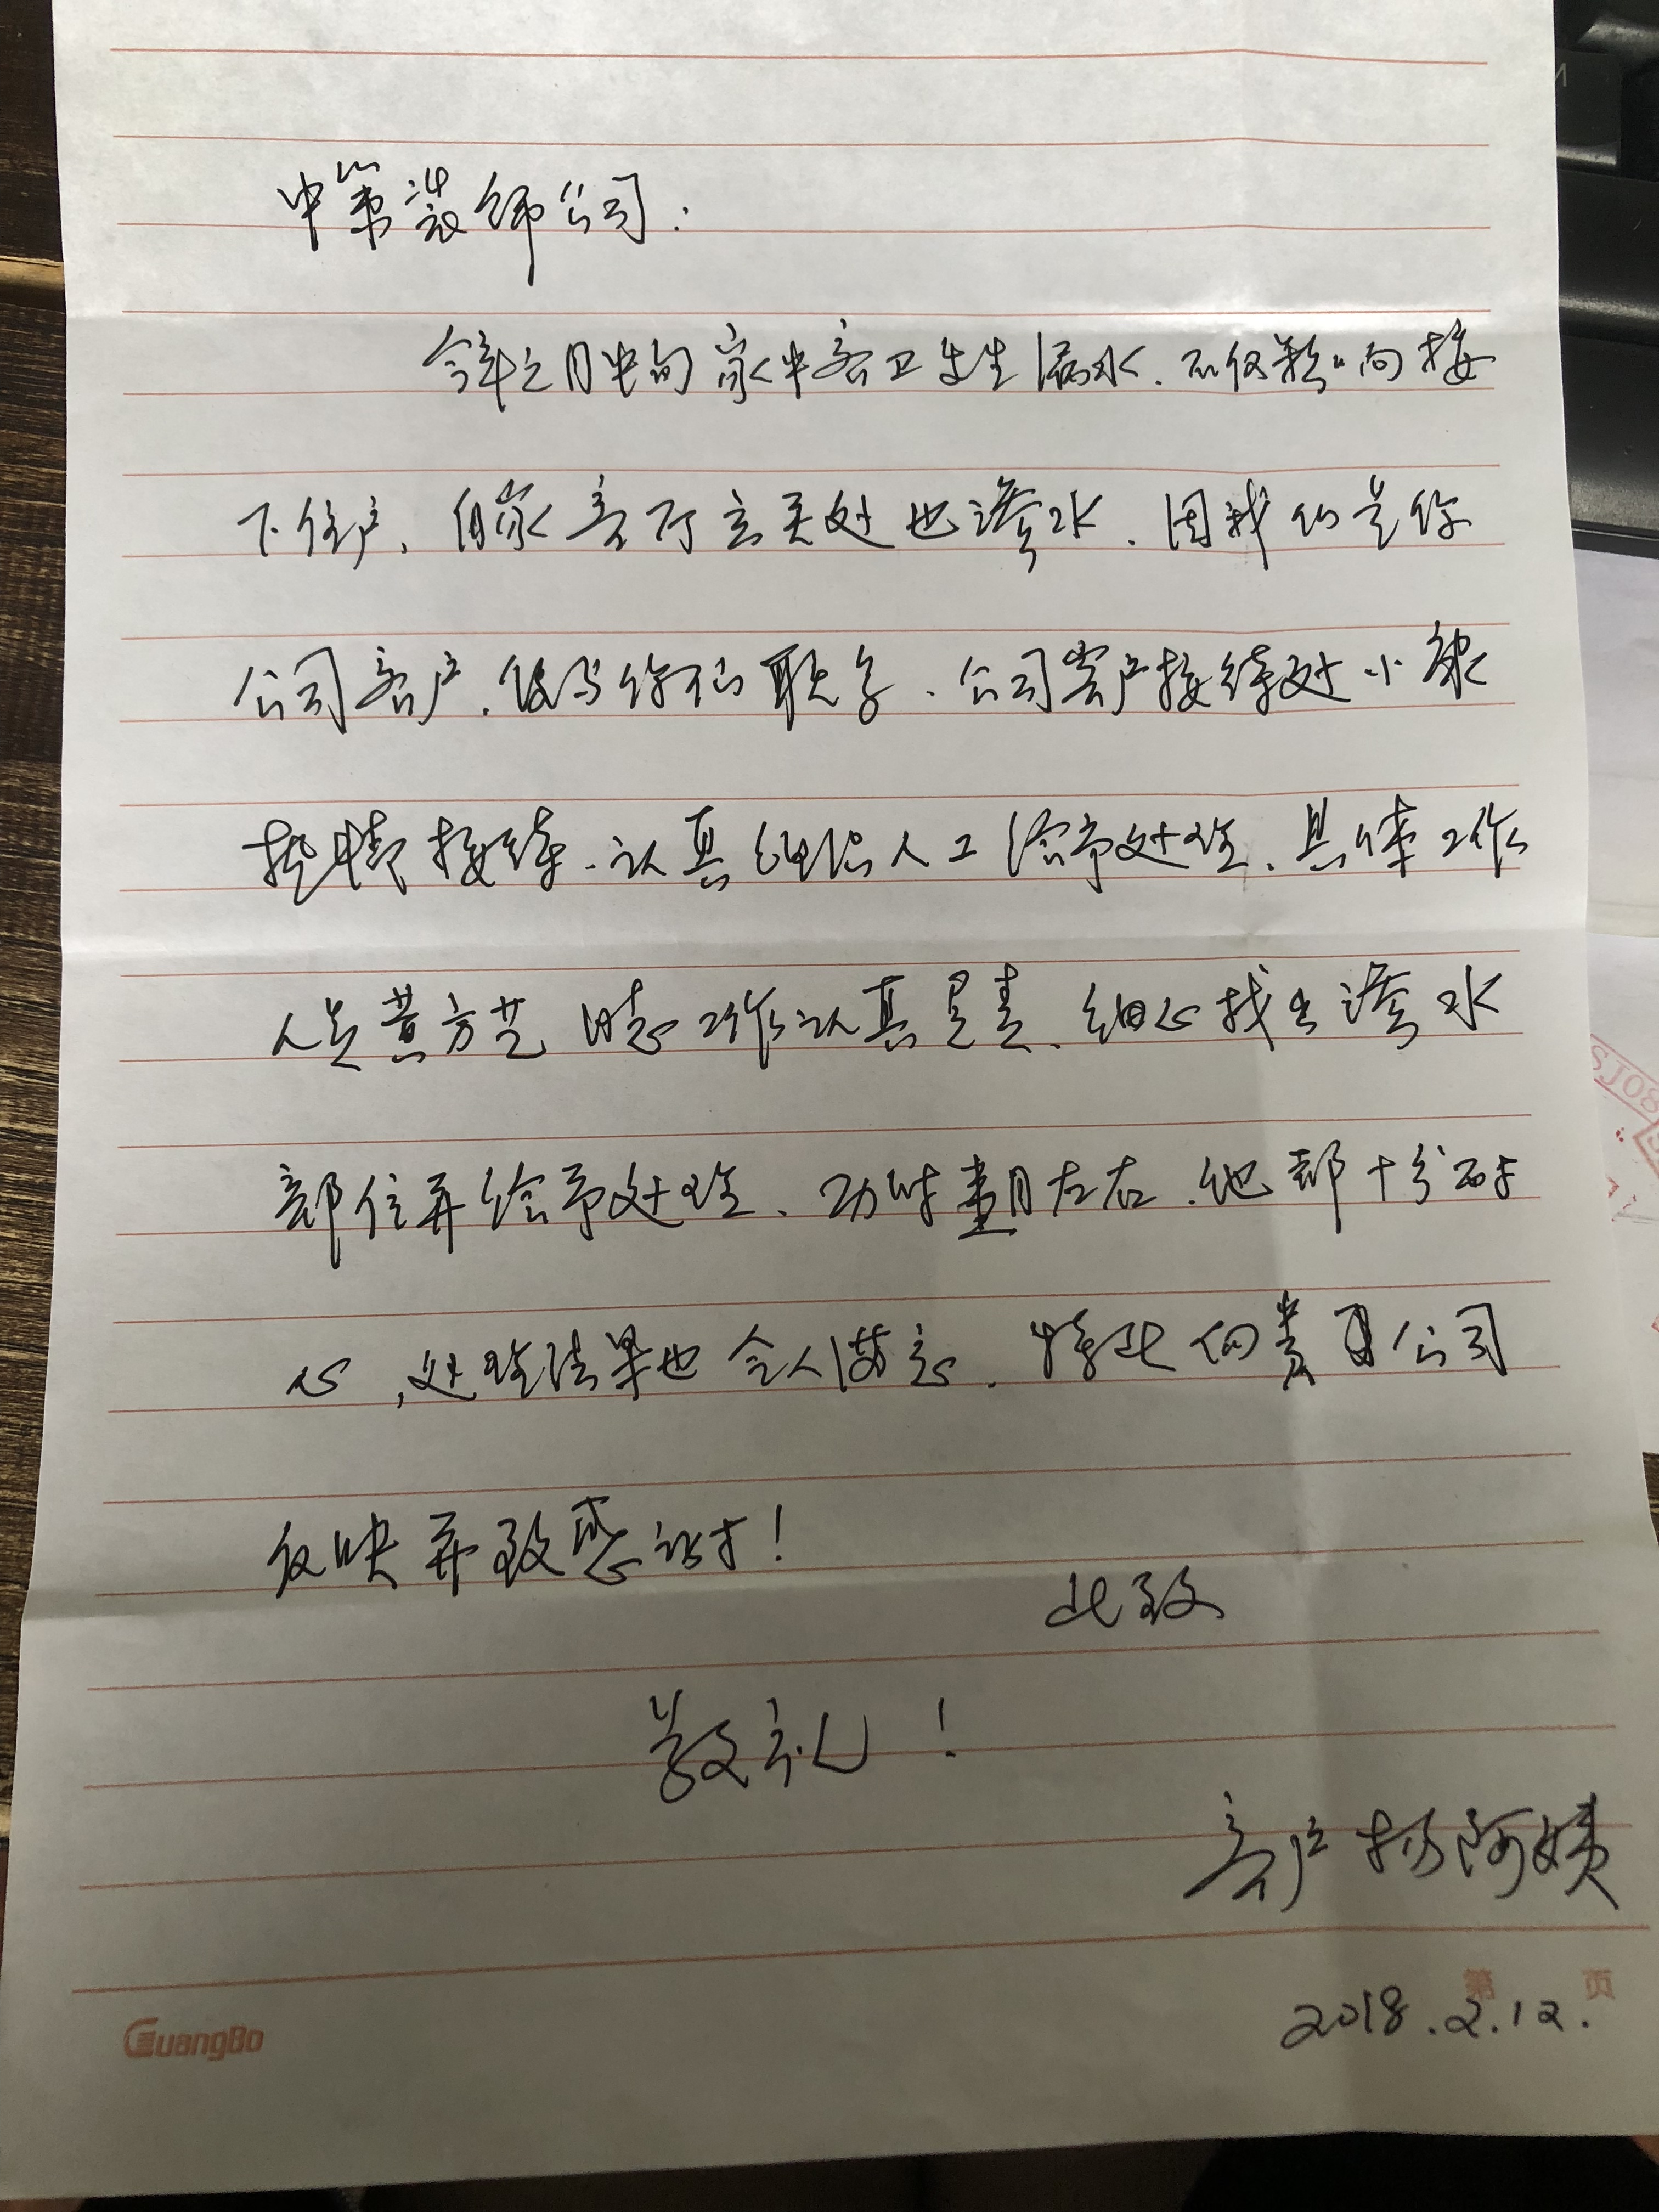 中策装饰公司:
今年元月中旬家中客卫发生漏水.不仅影响楼
下住户、自家客厅玄关处也渗水.因我们是你
公司客户.便与你们联系、公司客户接待处小张
热情接待.认真组织人工给予处理、具体工作
人员黄方艺同志工作认真负责、细心找出渗水
部位并给予处理、历时壹月左右.他都十分耐
心,处理结果也令人满意.特此向贵公司
反映并致感谢!
此致
敬礼!
客户杨阿姨
第 页
2018.2.12.
GuangBo
SJ08